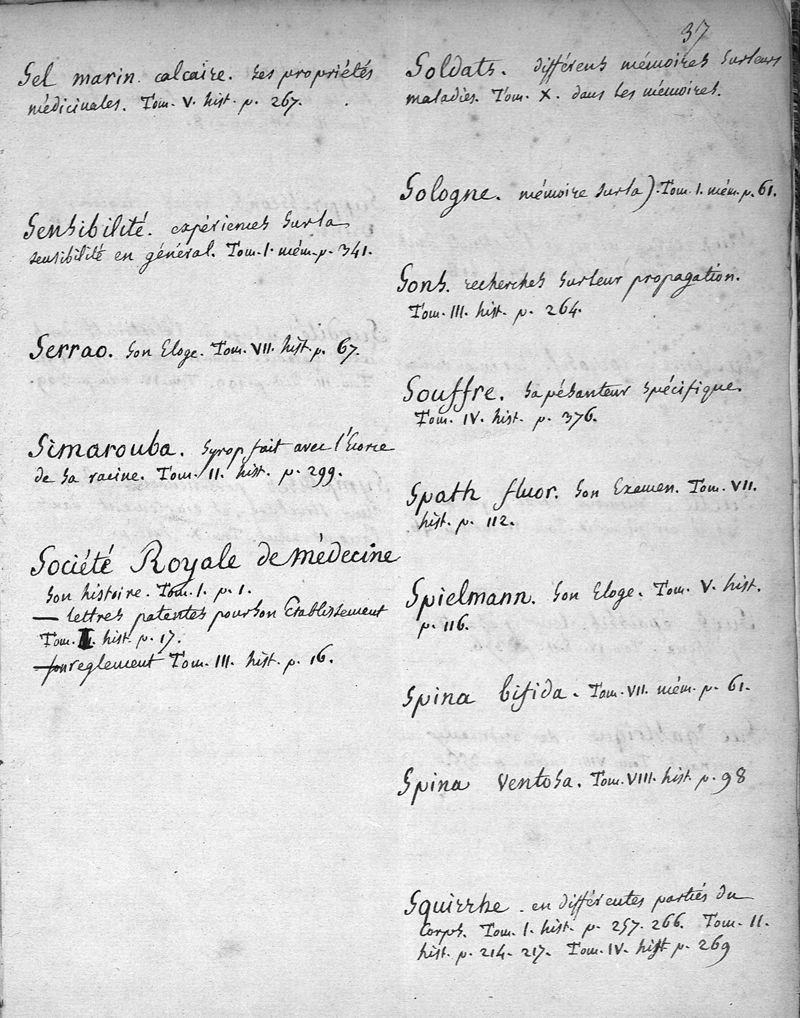 37
Sel marin calcaire. Ses propriétés
médicinales. Tom. V. hist. p. 267.
Sensibilité. expériences sur la
sensibilité en général. Tom. I. mém. p. 341.
Serrao. Son Eloge. Tom. VII. hist. p. 67.
Simarouba. Syrop fait avec l'Ecorce
de sa racine. Tom. II. hist. p. 299.
Société Royale de médecine
Son histoire. Tom. I. p. 1.
— lettres patentes pour son Etablissement
Tom. I. hist. p. 17.
— son reglement Tom. III. hist. p. 16.
Soldats. différens mémoires sur leurs
maladies. Tom. X. dans les mémoires.
Sologne. mémoire sur la) Tom. I. mém. p. 61.
Sons. recherches sur leur propagation.
Tom. III. hist. p. 264.
Souffre. Sa pésanteur spécifique.
Tom. IV. hist. p. 376.
Spath fluor. Son Examen. Tom. VII.
hist. p. 112.
Spielmann. Son Eloge. Tom. V. hist.
p. 116.
Spina bifida. Tom. VII. mém. p. 61.
Spina ventosa. Tom. VIII. hist. p. 98
Squirrhe. en différentes parties du
Corps. Tom. I. hist. p. 257. 266. Tom. II.
hist. p. 214. 217. Tom. IV. hist p. 269